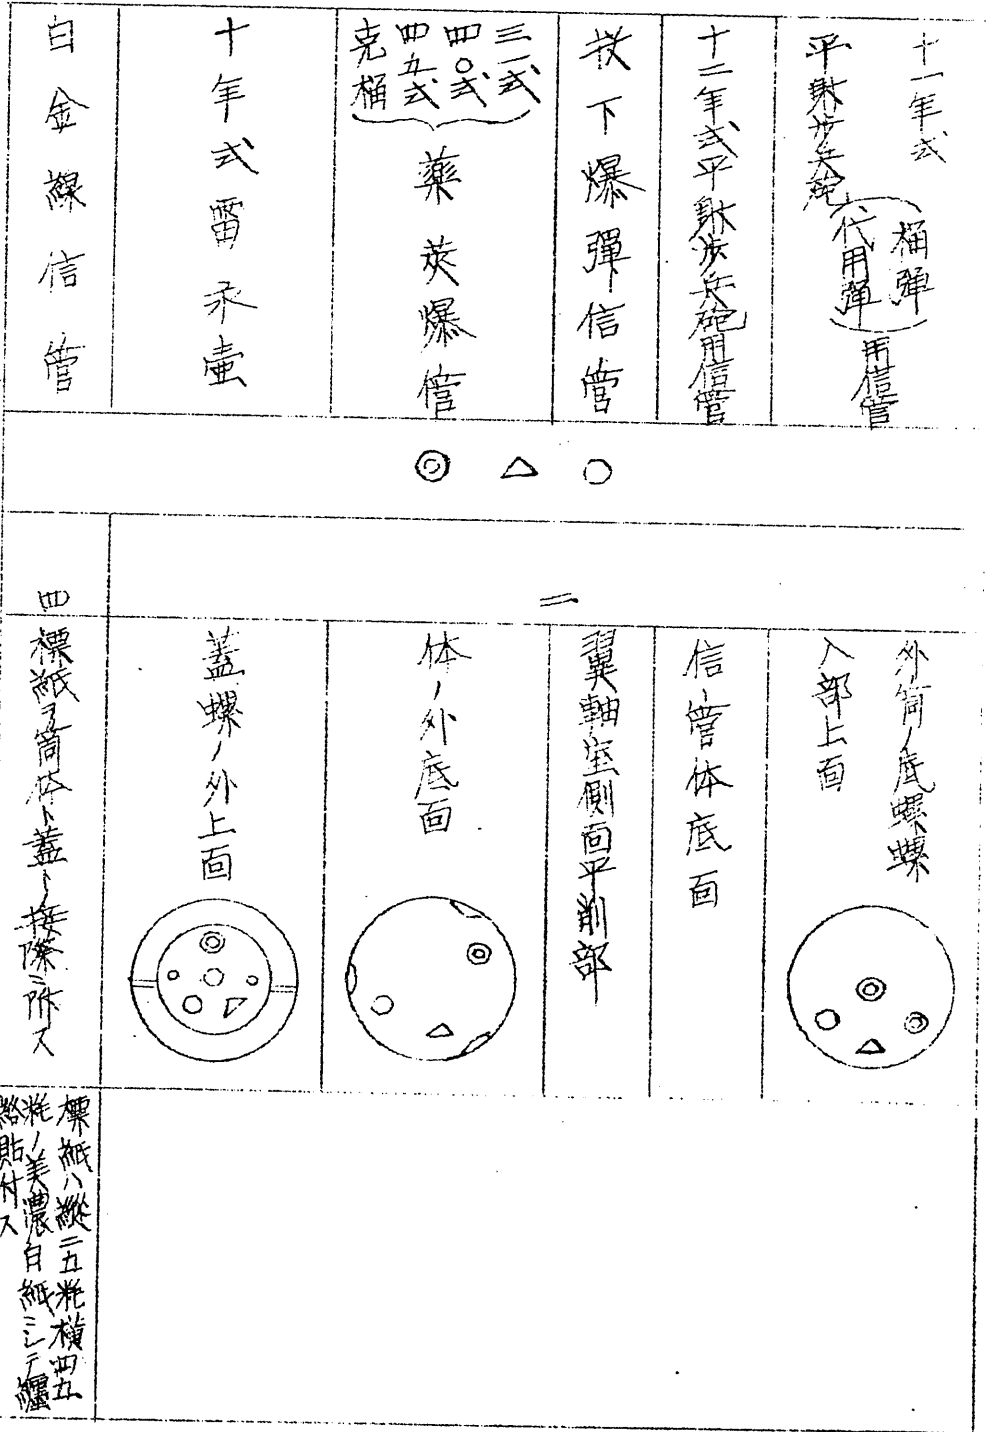 十一年式
平射歩兵砲
榴彈
代用彈
用信管
十二年式平射歩兵砲用信管
投下爆彈信管
三一式
四〇式
四五式
克榴
藥莢爆管
十年式雷汞壷
白金線信管
◎ △ ○
二
四
外筒ノ底螺螺
入部上面
信管体底面
翼軸室側面平削部
体ノ外底面
蓋螺ノ外上面
標紙ヲ筒体ト蓋トノ接際ニ附ス
標紙ハ縱二五粍横四五
粍ノ美濃白紙ニシテ纏
絡貼付ス